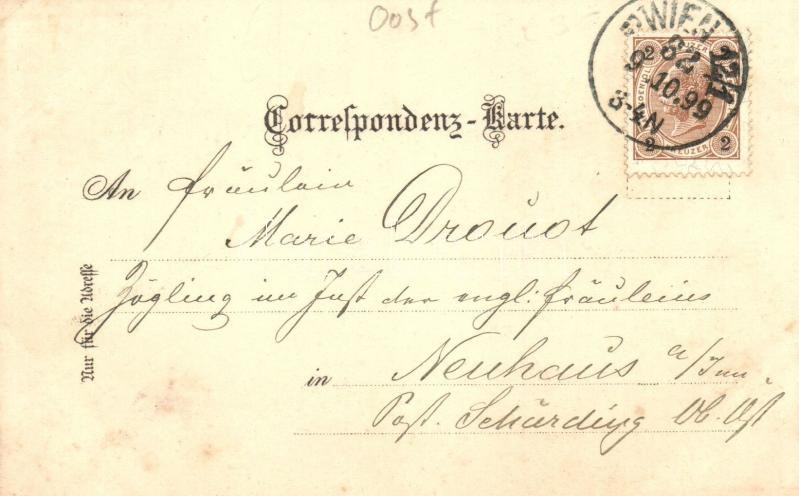 Oost
WIEN
12/1
62
9
.10.99
3-4N
KREUZER
2
2
2
KREUZER
Correspondenz-Karte.
An Fräulein
Marie Drouot
Zögling im Inst der engl. Fräuleins
in Neuhaus a/Inn
Post. Schärding Ob. Öst
Nur für die Adresse